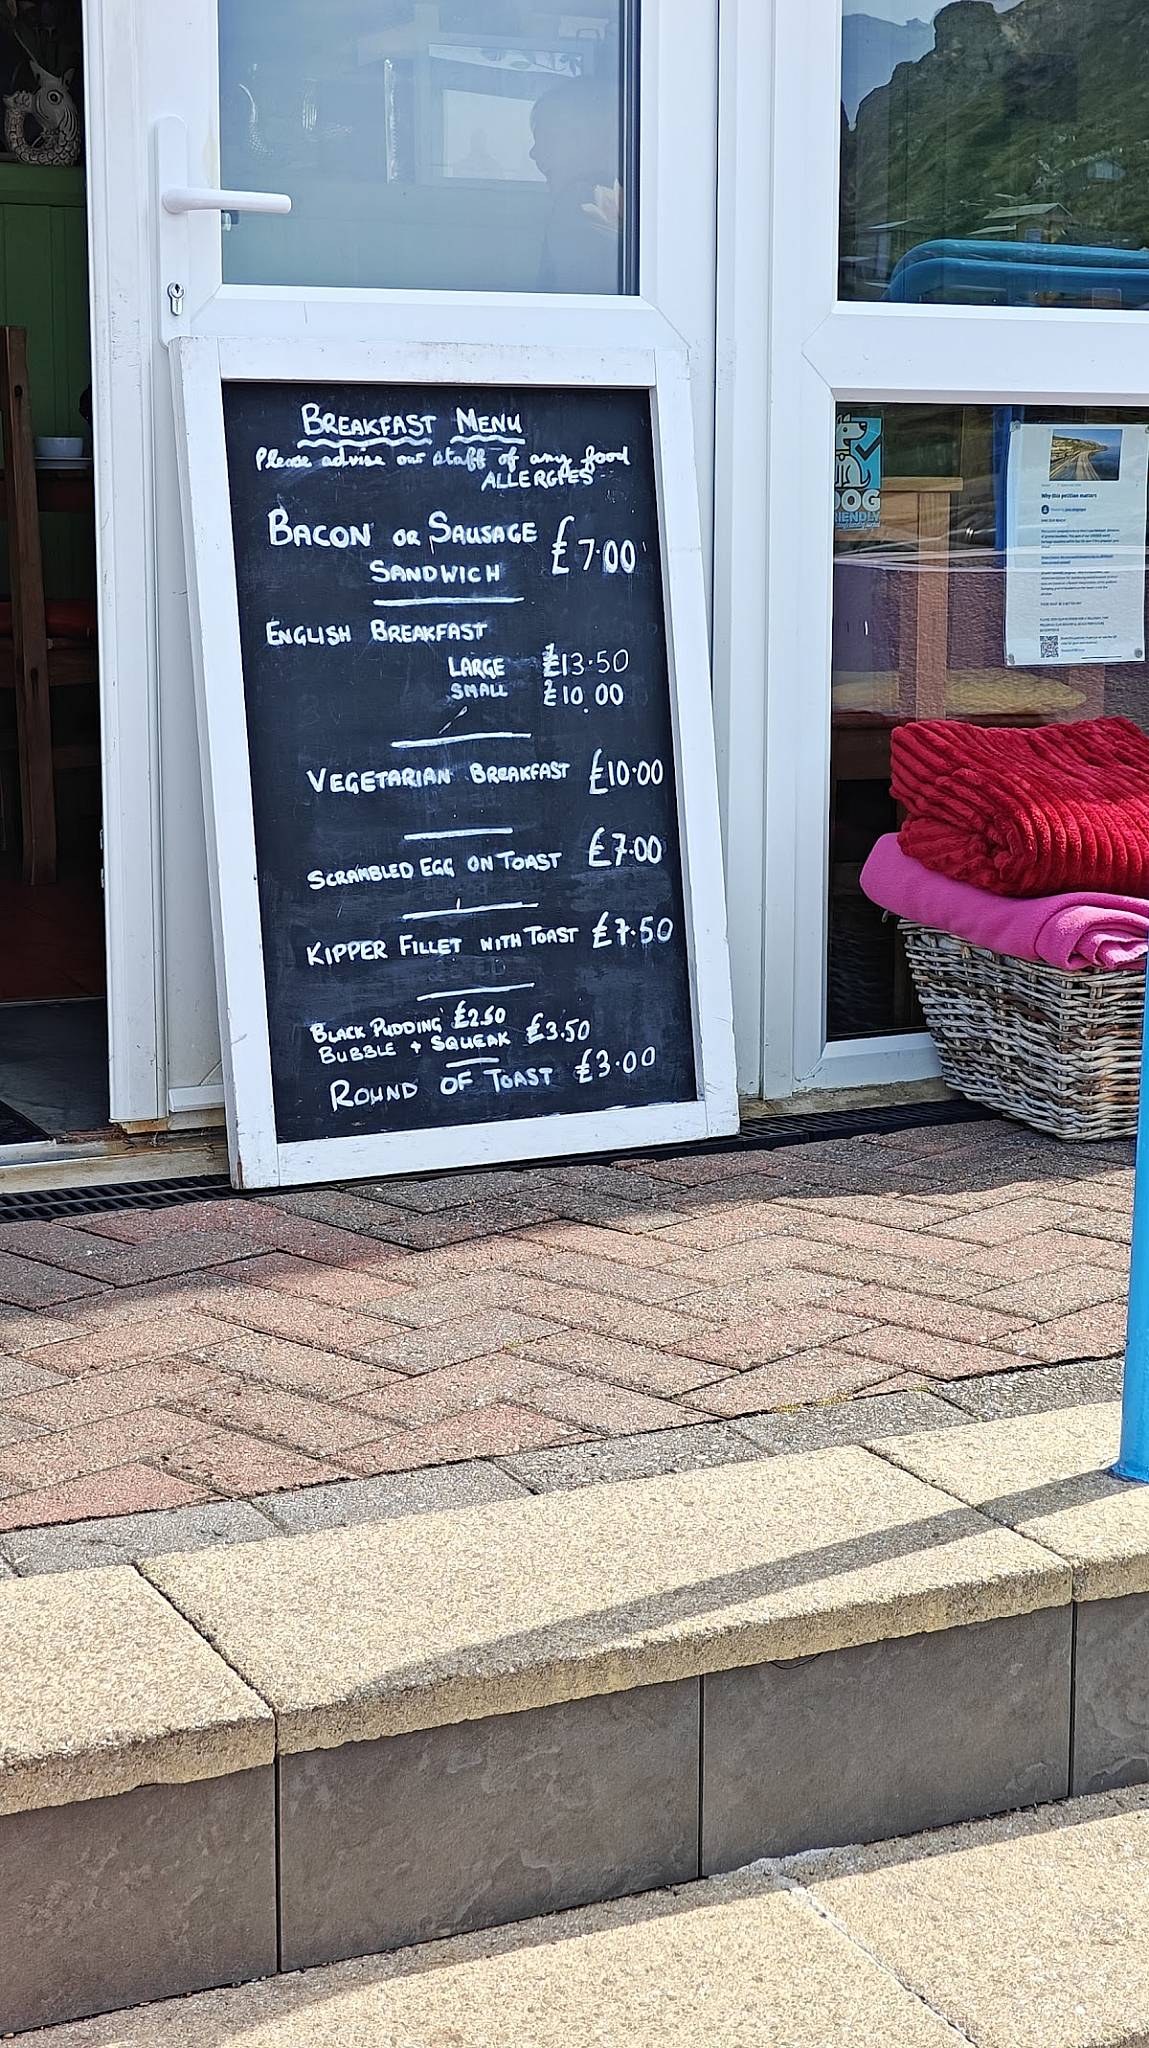 BREAKFAST MENU
Please advise our staff of any food
ALLERGIES
BACON OR SAUSAGE
SANDWICH £7.00
ENGLISH BREAKFAST
LARGE £13.50
SMALL £10.00
VEGETARIAN BREAKFAST £10.00
SCRAMBLED EGG ON TOAST £7.00
KIPPER FILLET WITH TOAST £7.50
BLACK PUDDING £2.50
BUBBLE + SQUEAK £3.50
ROUND OF TOAST £3.00
DOG
FRIENDLY
Why this petition matters